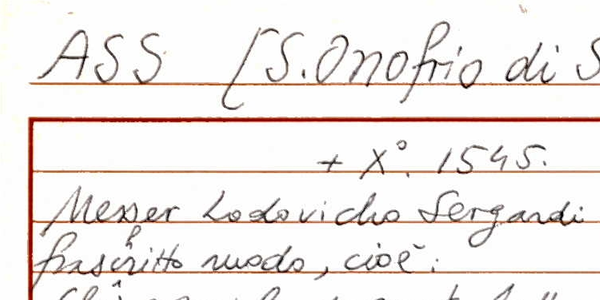 ASS [S. Onofrio di S
+ X°. 1545.
Messer Lodovicho Sergardi
frascritto modo, cioè: